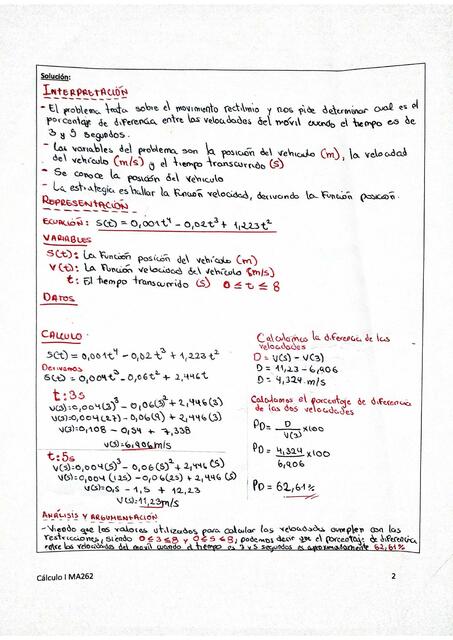 Solución:
INTERPRETACIÓN
- El problema trata sobre el movimiento rectilinio y nos pide determinar cual es el
porcentaje de diferencia entre las velocidades del móvil cuando el tiempo es de
3 y 5 segundos.
- Las variables del problema son la posición del vehículo (m), la velocidad
del vehículo (m/s) y el tiempo transcurrido (s)
- Se conoce la posición del vehículo
- La estrategia es hallar la función velocidad, derivando la función posición.
REPRESENTACIÓN
ECUACIÓN: S(t) = 0,001t⁴ - 0,02t³ + 1,223t²
VARIABLES
S(t): La función posición del vehículo (m)
V(t): La función velocidad del vehículo (m/s)
t: El tiempo transcurrido (s) 0 ≤ t ≤ 8
DATOS
CALCULO
S(t) = 0,001t⁴ - 0,02t³ + 1,223t²
Derivamos
S(t) = 0,004t³ - 0,06t² + 2,446t
t: 3s
V(3) = 0,004(3)³ - 0,06(3)² + 2,446(3)
V(3) = 0,004(27) - 0,06(9) + 2,446(3)
V(3) = 0,108 - 0,54 + 7,338
V(3) = 6,906 m/s
t: 5s
V(5) = 0,004(5)³ - 0,06(5)² + 2,446(5)
V(5) = 0,004(125) - 0,06(25) + 2,446(5)
V(5) = 0,5 - 1,5 + 12,23
V(5) = 11,23 m/s
Calculamos la diferencia de las
velocidades
D = V(5) - V(3)
D = 11,23 - 6,906
D = 4,324 m/s
Calculamos el porcentaje de diferencia
de las dos velocidades
PD = D/V(3) x100
PD = 4,324/6,906 x100
PD = 62,61%
ANÁLISIS Y ARGUMENTACIÓN
- Viendo que los valores utilizados para calcular las velocidades cumplen con las
restricciones, siendo 0 ≤ 3 ≤ 8 y 0 ≤ 5 ≤ 8, podemos decir que el porcentaje de diferencia
entre las velocidades del móvil cuando el tiempo es 3 y 5 segundos es aproximadamente 62,61%
Cálculo I MA262
2